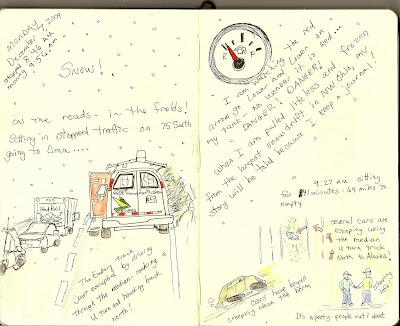 MONDAY,
December 2009
stopped 8:46 AU
moving 9:56 AM
SNOW!
on the roads - in the fields!
Sitting in stopped traffic on 75 South
going to Lima....
Red Bull
The
truck
Laser escaped by driving
through the median - making a
U turn and heading back
north!
E
I am watching the red
arrow go lower and lower on
my tank - no wonder it is red...
DANGER! DANGER!
When I am pulled lifeless and frozen
from the largest snow drift in NW Ohio, my
story will be told because I keep a journal!
9:27 AM sitting
for 41 minutes - 69 miles to
empty
several cars are
escaping using
the median
U turn trick
North to Alaska!
cars have begun
creeping down the
It's a party - people out + about